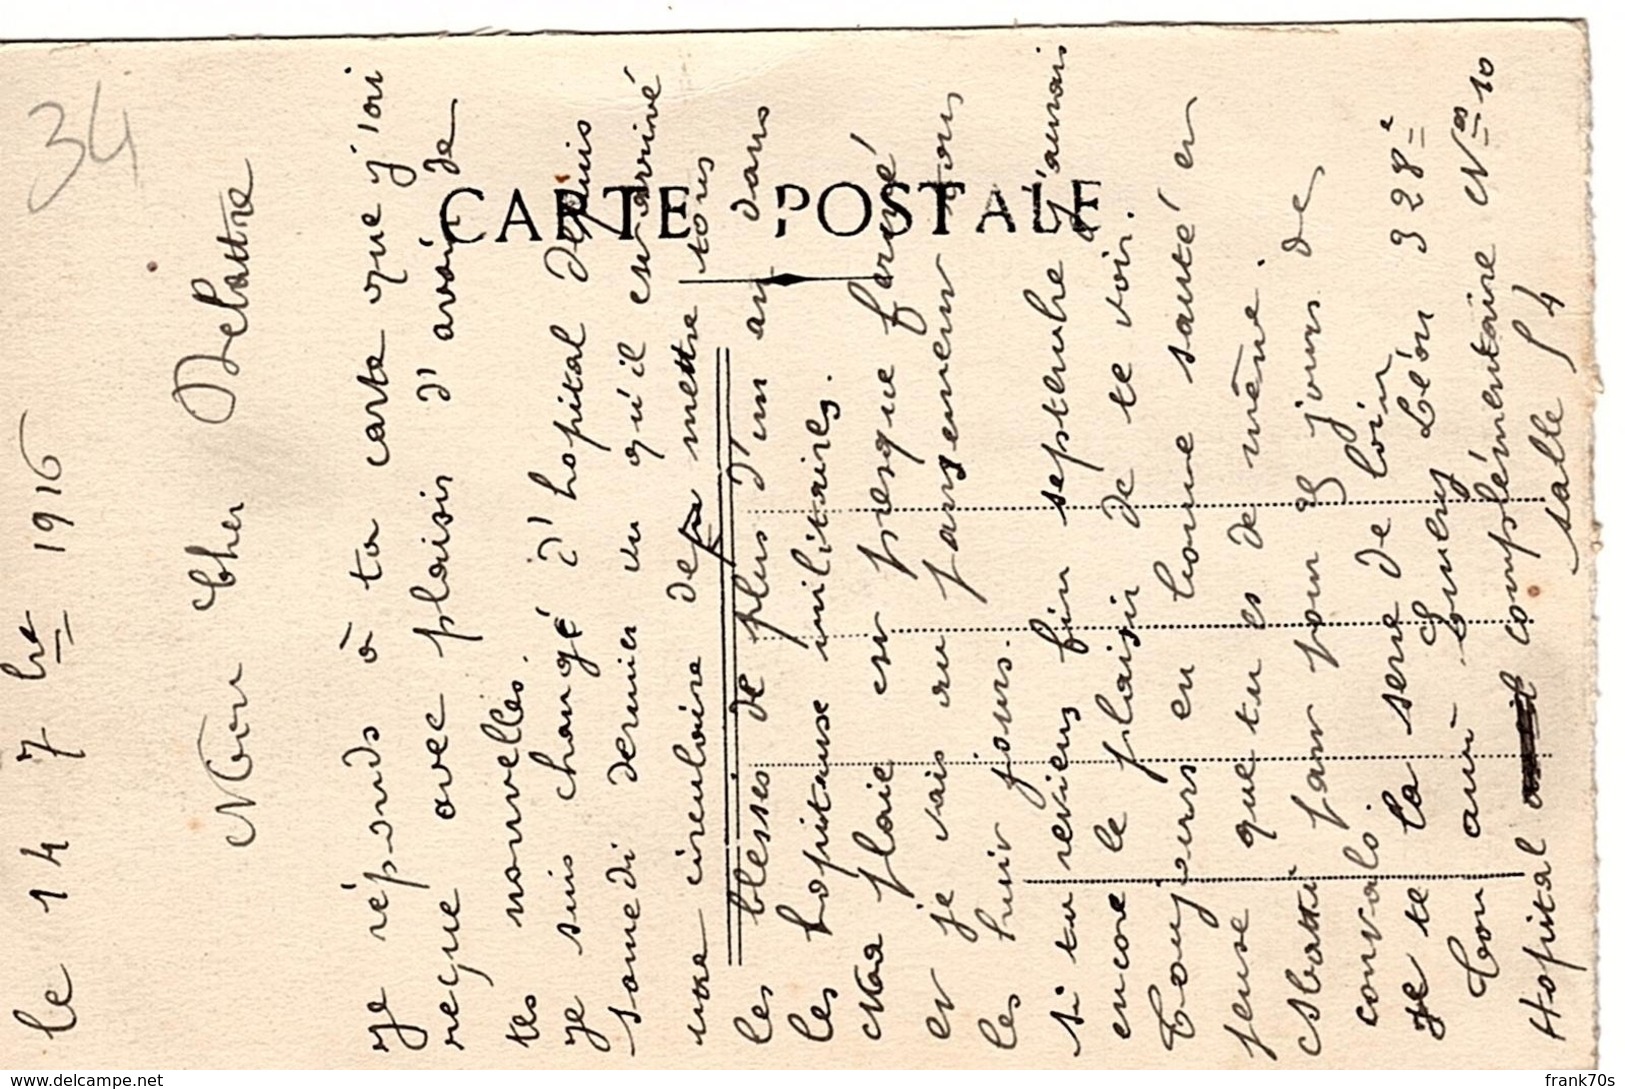 34
le 14 7bre 1916
Mon Cher Delattre
CARTE POSTALE
Je réponds à ta carte que j'ai
reçue avec plaisir d'avoir de
tes nouvelles.
Je suis changé d'hopital depuis
samedi dernier vu qu'il est arrivé
une circulaire de mettre tous
les blessés de plus d'un an dans
les hopitaux militaires.
Ma plaie est presque fermé
et je vais au pansement tous
les huit jours.
si tu reviens fin septembre j'aurais
encore le plaisir de te voir.
Toujours en bonne santé et
pense que tu es de même.
Esbattu part pour 25 jours de
convalo.
Je te la serre de loin
Ton ami Louluy Léon 328e
Hopital complémentaire Nos 10
salle S 4
www.delcampe.net
frank70s